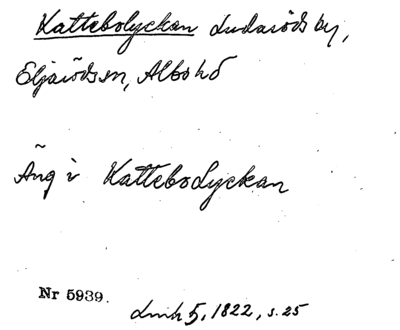 Kattebolyckan Ludaröds by,
Eljaröds sn, Albo hd
Äng i Kattebolyckan
Nr 5939.
Lmh 5, 1822, s. 25